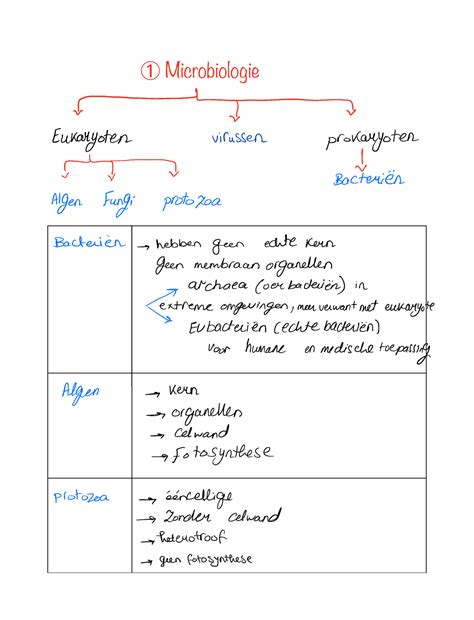 ① Microbiologie
Eukaryoten virussen prokaryoten
Bacteriën
Algen Fungi protozoa
Bacteriën → hebben geen echte kern
geen membraan organellen
archaea (oer bacteriën) in
extreme omgevingen, meer verwant met eukaryote
Eubacteriën (echte bacteriën)
voor humane en medische toepassing
Algen → kern
→ organellen
→ celwand
→ Fotosynthese
protozoa → ééncellige
→ Zonder celwand
→ heterotroof
→ geen fotosynthese